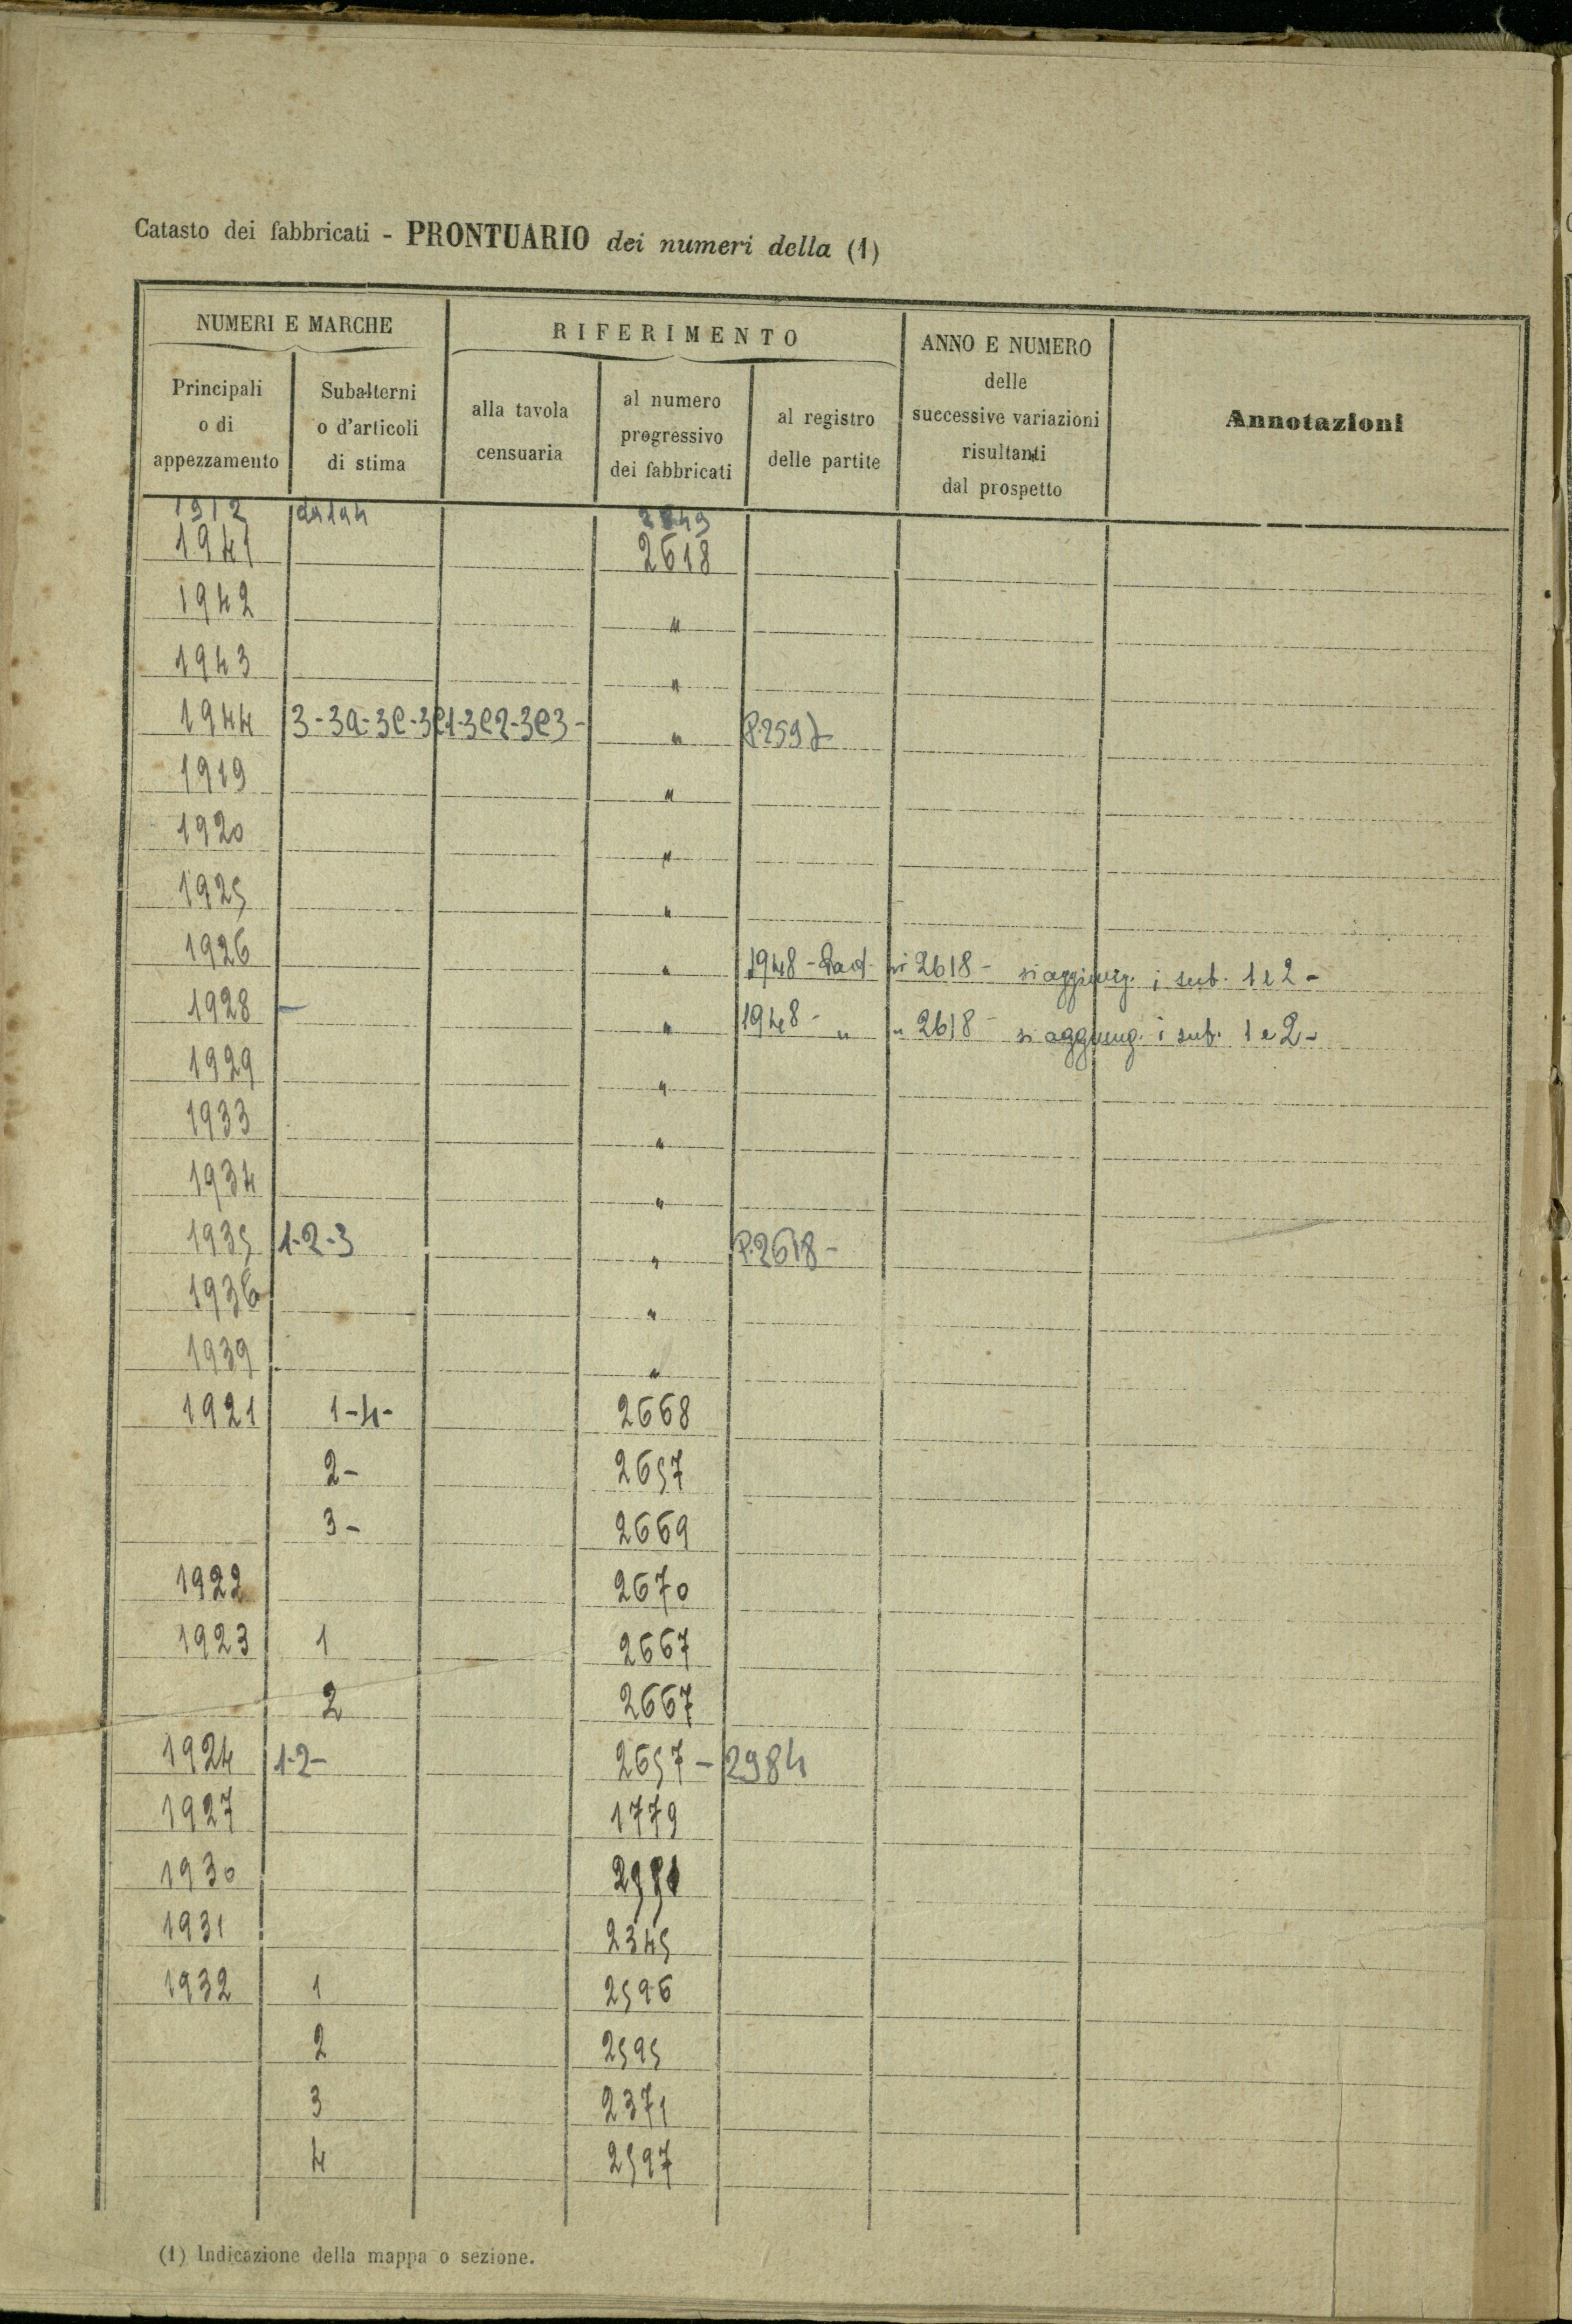 Catasto dei fabbricati - PRONTUARIO dei numeri della (1)
NUMERI E MARCHE
RIFERIMENTO
ANNO E NUMERO
delle
successive variazioni
risultanti
dal prospetto
Annotazioni
Principali
o di
appezzamento
Subalterni
o d'articoli
di stima
alla tavola
censuaria
al numero
progressivo
dei fabbricati
al registro
delle partite
1912
1941 2618
1942 "
1943 "
1944 3-3a-3e-3e1-3e2-3e3- " P.2597
1919 "
1920 "
1925 "
1926 " 1948 - 2618 - si aggiung. i sub. 1 e 2 -
1928 - " 1948 - " " 2618 - si aggiung. i sub. 1 e 2 -
1929 "
1933 "
1934 "
1935 1-2-3 " P.2618 -
1936 "
1939 "
1921 1-4- 2668
2- 2657
3- 2669
1922 2670
1923 1 2667
2 2667
1924 1-2- 2657 - 2984
1927 1779
1930
1931 2345
1932 1 2596
2 2595
3 2371
4 2597
(1) Indicazione della mappa o sezione.